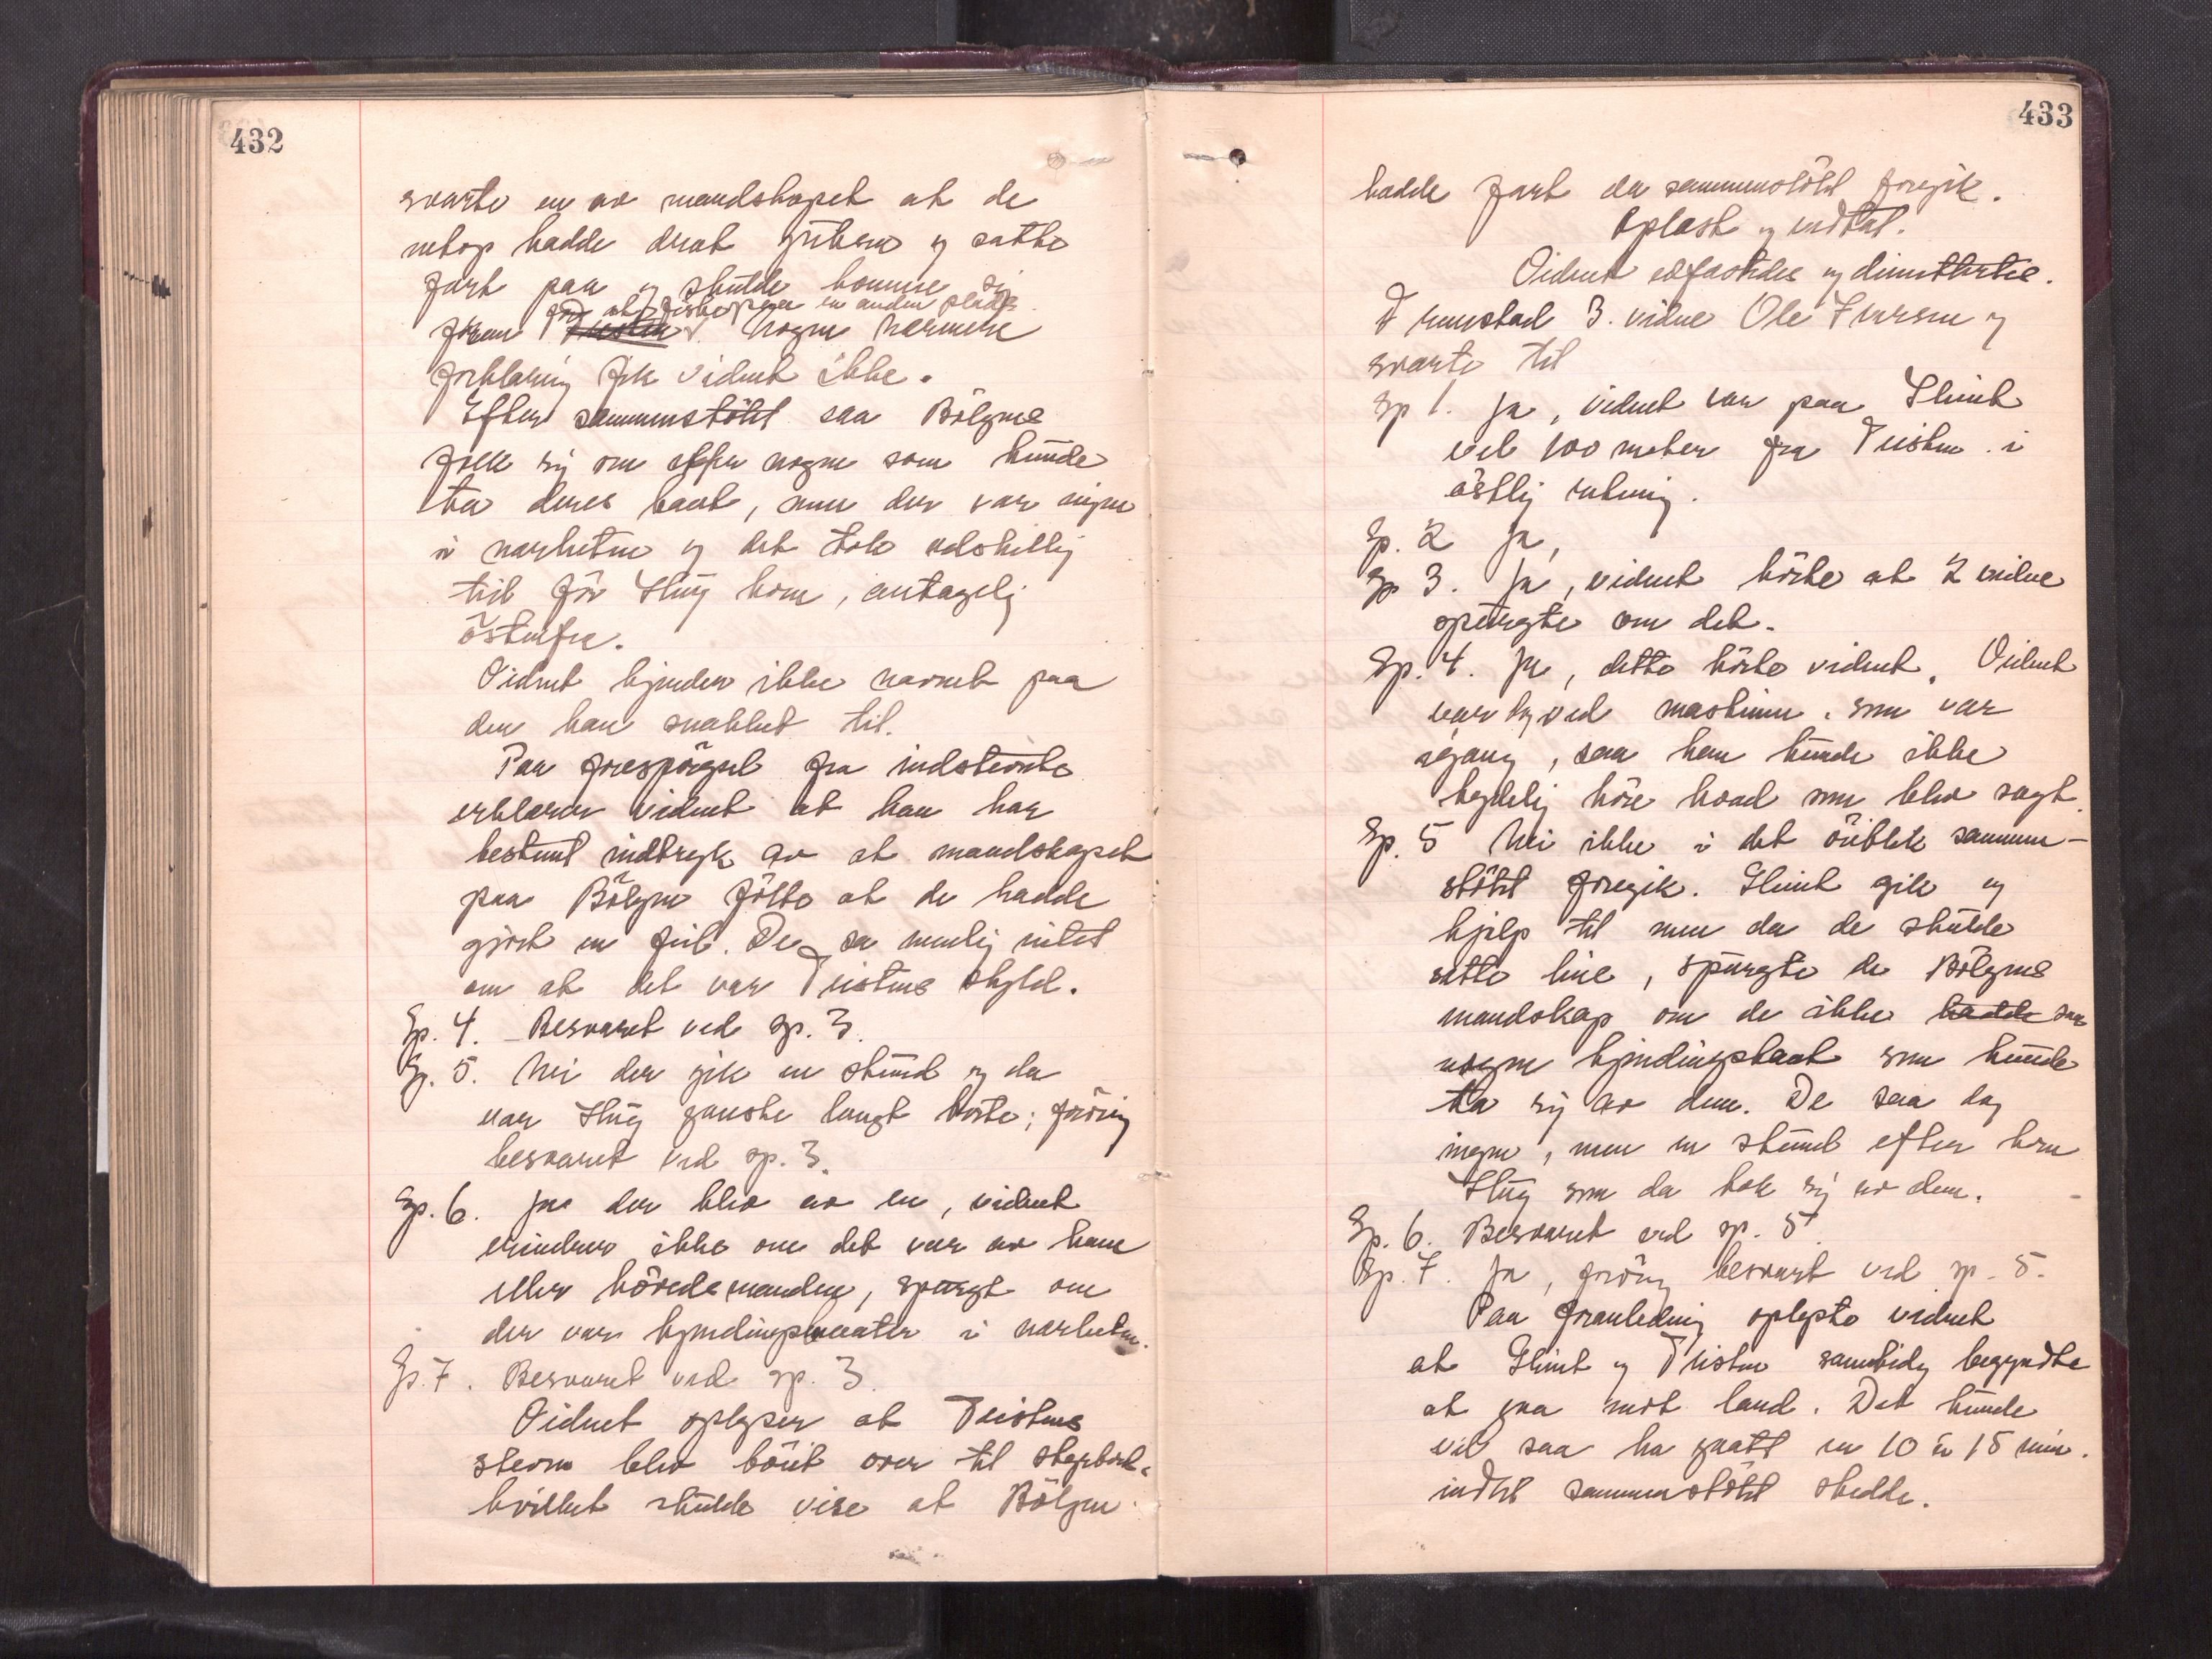 432
svarte en av mandskapet at de
netop hadde drat griben og satte
fart paa og skulde komme sig
for at fiske paa en anden plads
foran Teisten. Nogen nærmere
forklaring fik vidnet ikke.
Efter sammenstötet saa Bölgens
folk sig om efter nogen som kunde
ta deres baat, men der var ingen
i nærheten og det tok adskillig
tid för Stüg kom, antagelig
östenfra.
Vidnet kjender ikke navnet paa
den han snakket til.
Paa forespörgsel fra indstevnte
erklærer vidnet at han har
bestemt indtryk av at mandskapet
paa Bölgen fölte at de hadde
gjort en feil. De sa nemlig intet
om at det var Teistens skyld.
Sp. 4. Besvaret ved sp. 3.
Sp. 5. Nei der gik en stund og da
var Stüg ganske langt borte; forövrig
besvaret ved sp. 3.
Sp. 6. Ja der blev av en, vidnet
erindrer ikke om det var av ham
eller hövedsmanden, spurgt om
der var kjendingsbaater i nærheten.
Sp. 7. Besvaret ved sp. 3.
Vidnet oplyser at Teistens
stevn blev böiet over til styrbord,
hvilket skulde vise at Bölgen
433
hadde fart da sammenstötet foregik.
Oplæst og vedtat.
Vidnet edfæstedes og dimitteredes.
Fremstod 3. vidne Ole Iversen og
svarte til
Sp 1. Ja, vidnet var paa Glimt
vel 100 meter fra Teisten i
östlig retning.
Sp. 2 Ja,
Sp 3. Ja, vidnet hörte at 2 vidne
spurgte om det.
Sp. 4. Ja, dette hörte vidnet. Vidnet
var dog ved maskinen, som var
igang, saa han kunde ikke
tydelig höre hvad som blev sagt.
Sp. 5 Nei ikke i det öieblik sammen-
stötet foregik. Glimt gik og
hjelp til men da de skulde
sette line, spurgte de Bölgens
mandskap om de ikke hadde saa
nogen kjendingsbaat som kunde
ta sig av dem. De saa dog
ingen, men en stund efter kom
Stüg som da tok sig av dem.
Sp. 6. Besvaret ved sp. 5.
Sp. 7. Ja, forövrig besvaret ved sp. 5.
Paa foranledning oplyste vidnet
at Glimt og Teisten samtidig begyndte
at gaa mot land. Det kunde
vel saa ha gaatt en 10 à 15 min.
indtil sammenstötet skedde.